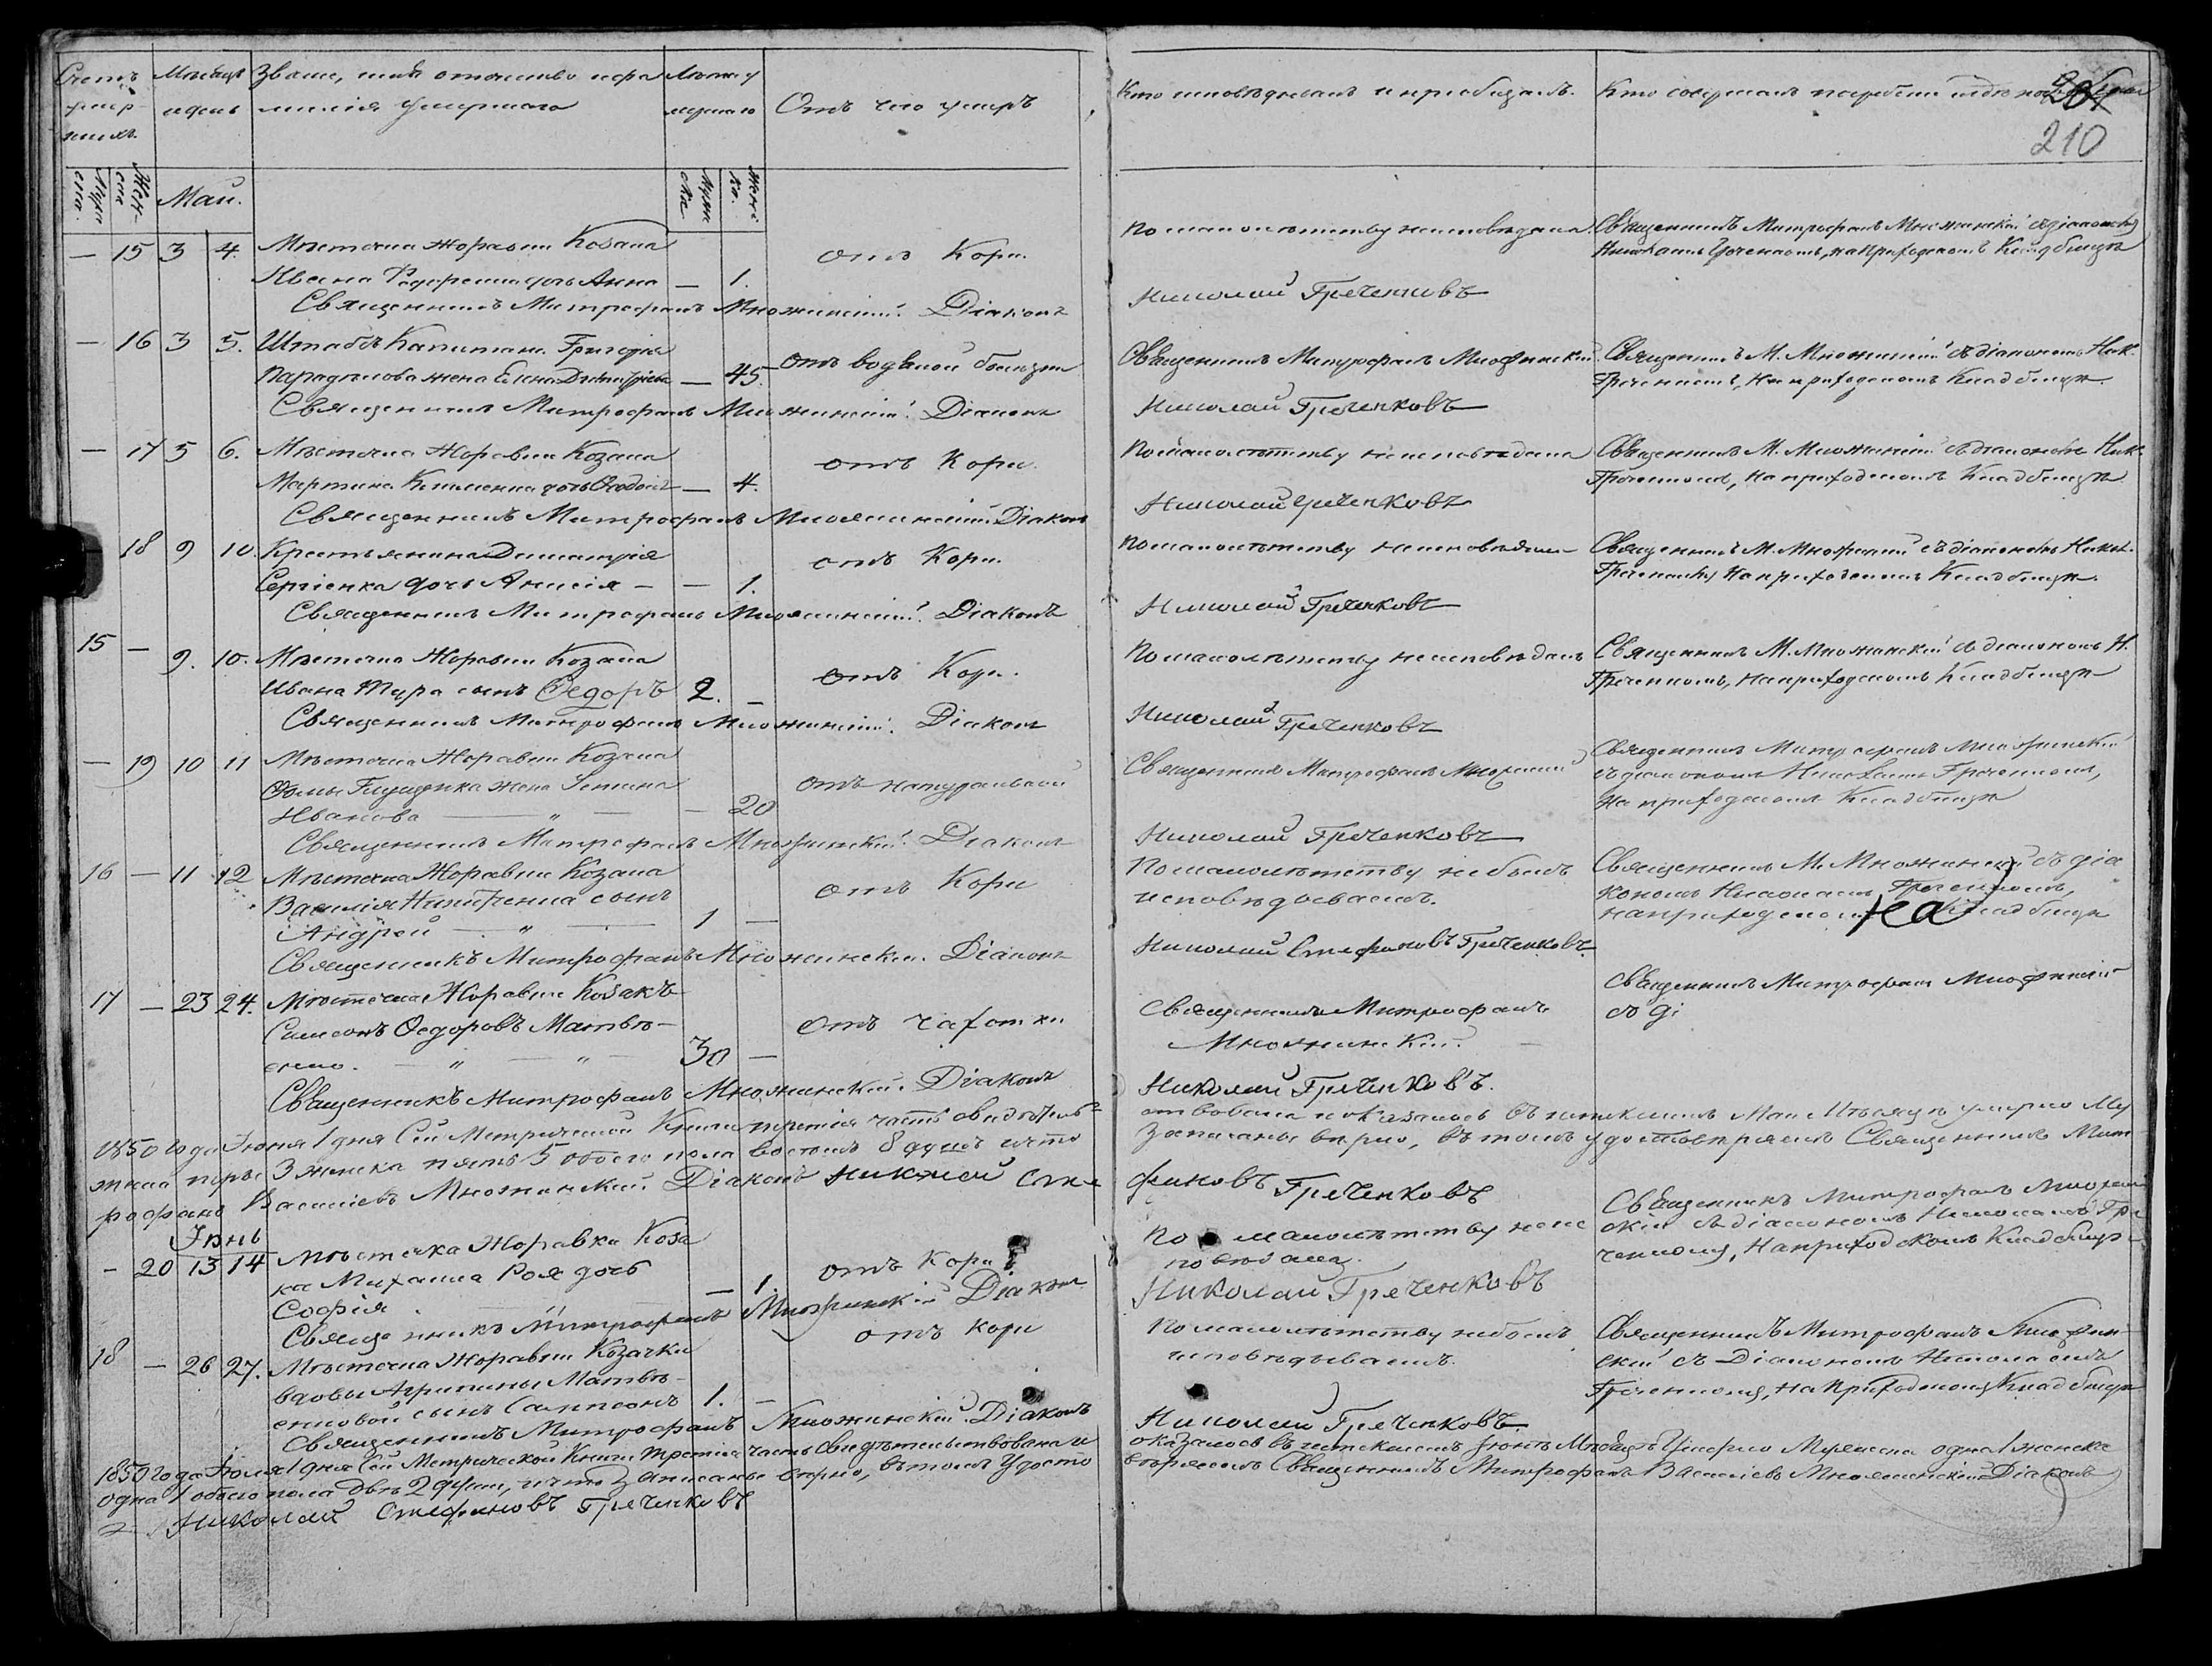 Счетъ умер-шихъ
Мѣсяцъ и день
Званіе, имя отчество и фамилія умершаго
Лѣта умершаго
Отъ чего умеръ
Кто исповѣдывалъ и пріобщалъ.
Кто совершалъ погребеніе и гдѣ
210
Муже ска.
Жен-ска
Май.
Муже ска
Женс ка.
— 15 3 4. Мѣстечка Журавки Козака — 1. отъ Кори.
Ивана Федоренка дочь Анна
По малолѣтству неисповѣдана
Священникъ Митрофанъ Множинскій съ діакономъ
Николаемъ Греченкомъ, на Приходскомъ Кладбищѣ
Священникъ Митрофанъ Множинскій. Діаконъ Николай Греченковъ
— 16 3 5. Штабсъ Капитана Григорія
жена Елена Дмитріева — 45. Отъ водяной болѣзни
Священникъ Митрофанъ Множинскій.
Священникъ М. Множинскій съ діакономъ Ник.
Греченкомъ, На приходскомъ Кладбищѣ.
Священникъ Митрофанъ Множинскій. Діаконъ Николай Греченковъ
— 17 5 6. Мѣстечка Журавки Козака
Мартина Клименка дочь — 4. отъ Кори.
По малолѣтству неисповѣдана
Священникъ М. Множинскій съ діакономъ Ник.
Греченкомъ, На приходскомъ Кладбищѣ
Священникъ Митрофанъ Множинскій. Діаконъ Николай Греченковъ
18 9 10. Крестьянина Димитрія
Сергіенка дочь Анисія — — 1. отъ Кори.
По малолѣтству неисповѣдана
Священникъ М. Множинскій съ діакономъ Никол.
Греченкомъ, На приходскомъ Кладбищѣ.
Священникъ Митрофанъ Множинскій. Діаконъ Николай Греченковъ
15 — 9. 10. Мѣстечка Журавки Козака
Ивана Тура сынъ Ѳедоръ 2. — отъ Кори.
По малолѣтству неисповѣданъ
Священникъ М. Множинскій съ діакономъ Н.
Греченкомъ, На приходскомъ Кладбищѣ
Священникъ Митрофанъ Множинскій. Діаконъ Николай Греченковъ
— 19 10 11 Мѣстечка Журавки Козака
Ѳомы Глущенка жена
Иванова — " — — 20 отъ натуральной
Священникъ Митрофанъ Множинскій
Священникъ Митрофанъ Множинскій
съ діакономъ Николаемъ Греченкомъ,
На приходскомъ Кладбищѣ
Священникъ Митрофанъ Множинскій. Діаконъ Николай Греченковъ
16 — 11 12 Мѣстечка Журавки Козака
Василія сынъ
Андрей — " — 1 — отъ Кори
По малолѣтству небылъ
исповѣдываемъ.
Священникъ М. Множинскій съ діа
кономъ Николаемъ Греченкомъ,
на приходскомъ на Кладбищѣ
Священникъ Митрофанъ Множинскій. Діаконъ Николай Стефановъ Греченковъ.
17 — 23 24. Мѣстечка Журавки Козакъ
Самсонъ Ѳедоровъ Матвѣ-
енко. — " — " — 30 — Отъ чахотки
Священникъ Митрофанъ
Множинскій.
Священникъ Митрофанъ Множинскій
съ ді
Священникъ Митрофанъ Множинскій. Діаконъ Николай Греченковъ.
1850 года Іюня 1 дня Сей Метрической Книги третія часть свидѣтель-
ствована и оказалось въ истекшемъ Маѣ Мѣсяцѣ умерло Му
жеска 3 женска пять 5 обоего пола восемь 8 душъ и что
записаны вѣрно, въ томъ удостовѣряемъ Священникъ Мит
рофанъ Васильевъ Множинскій. Діаконъ Николай Сте
фановъ Греченковъ
Іюнь
— 20 13 14 Мѣстечка Журавки Коза
ка Михаила Роя дочь
Софія — 1. отъ Кори
По малолѣтству неис
повѣдана.
Священникъ Митрофанъ Множин
скій съ діакономъ Николаемъ Гре
ченкомъ, На приходскомъ Кладбищѣ
Священникъ Митрофанъ Множинскій Діаконъ Николай Греченковъ
18 — 26 27. Мѣстечка Журавки Козачки
вдовы Агрипины Матвѣ-
енковой сынъ Сампсонъ 1. — отъ кори
По малолѣтству небылъ
исповѣдываемъ.
Священникъ Митрофанъ Множин-
скій съ Діакономъ Николаемъ
Греченкомъ, На Приходскомъ Кладбищѣ
Священникъ Митрофанъ Множинскій. Діаконъ Николай Греченковъ.
1850 года Іюля 1 дня Сей Метрической Книги третія часть свидѣтельствована и
оказалось въ истекшемъ Іюнѣ Мѣсяцѣ Умерло Мужеска одна 1 женска
одна 1 обоего пола двѣ 2 души, и что записаны вѣрно, въ томъ Удосто
вѣряемъ Священникъ Митрофанъ Васильевъ Множинскій Діаконъ
Николай Стефановъ Греченковъ